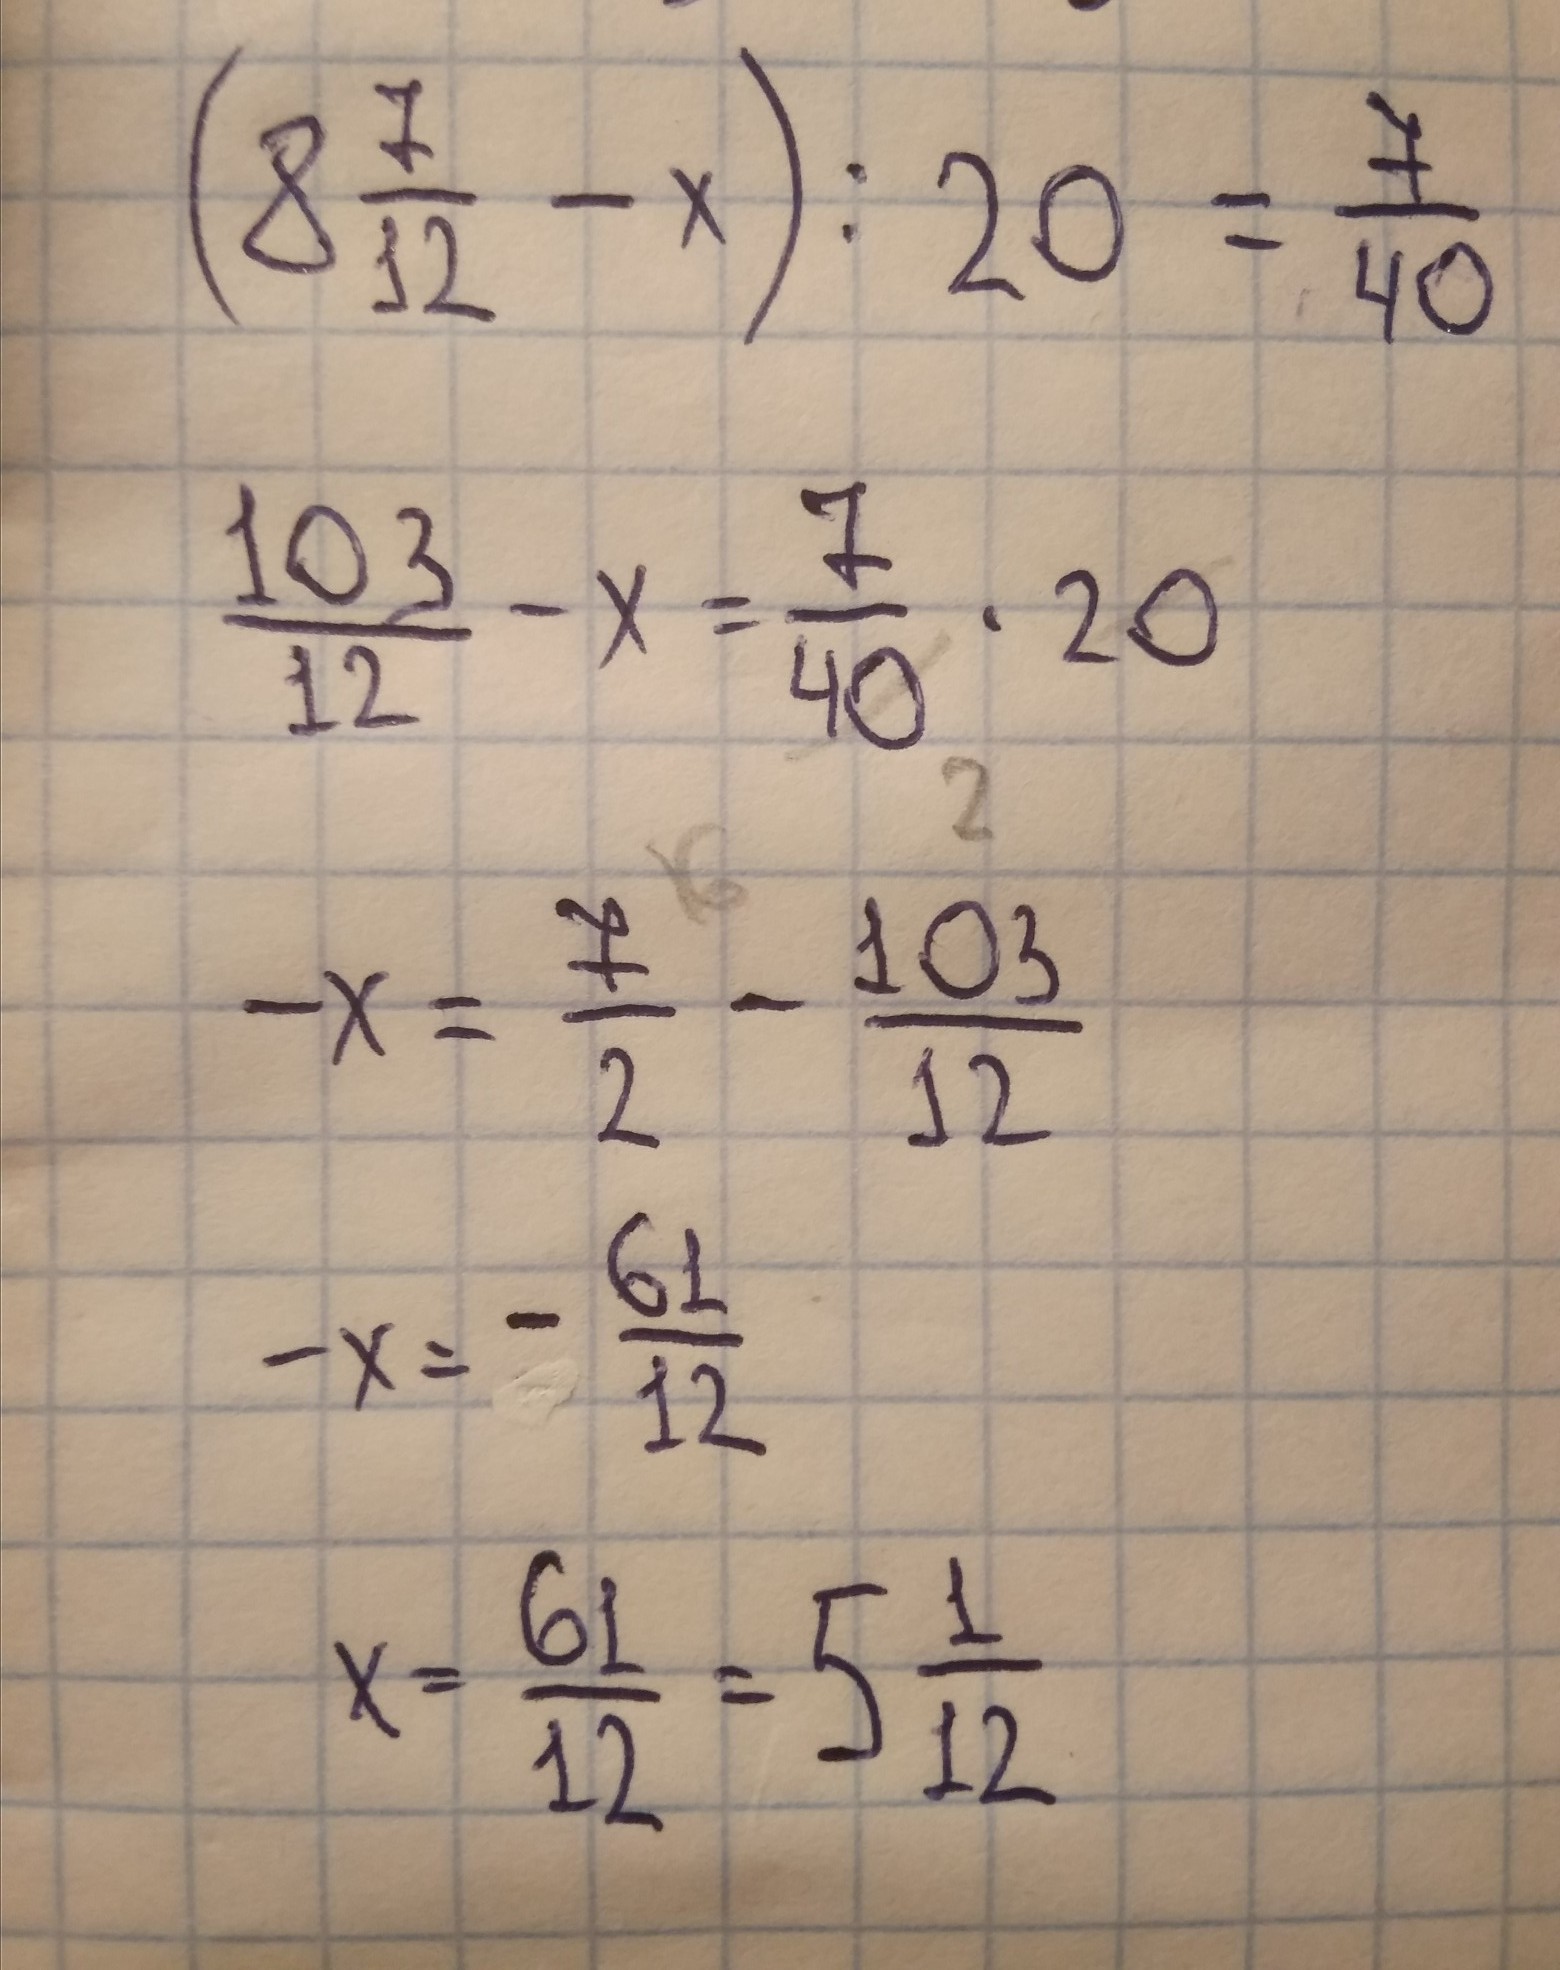 (8 7/12 - x) : 20 = 7/40
103/12 - x = 7/40 · 20
2
-x = 7/2 6 - 103/12
-x = - 61/12
x = 61/12 = 5 1/12